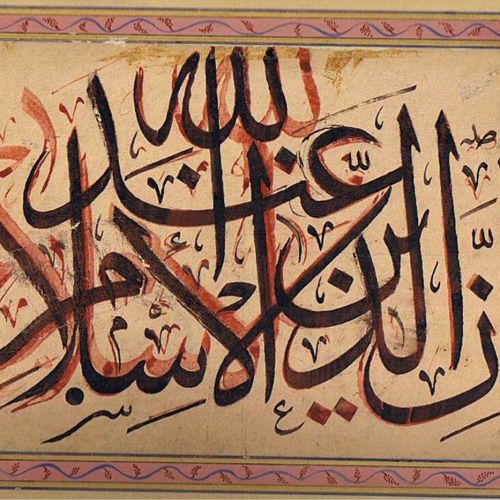 نّ الدين عند الله الاسلام